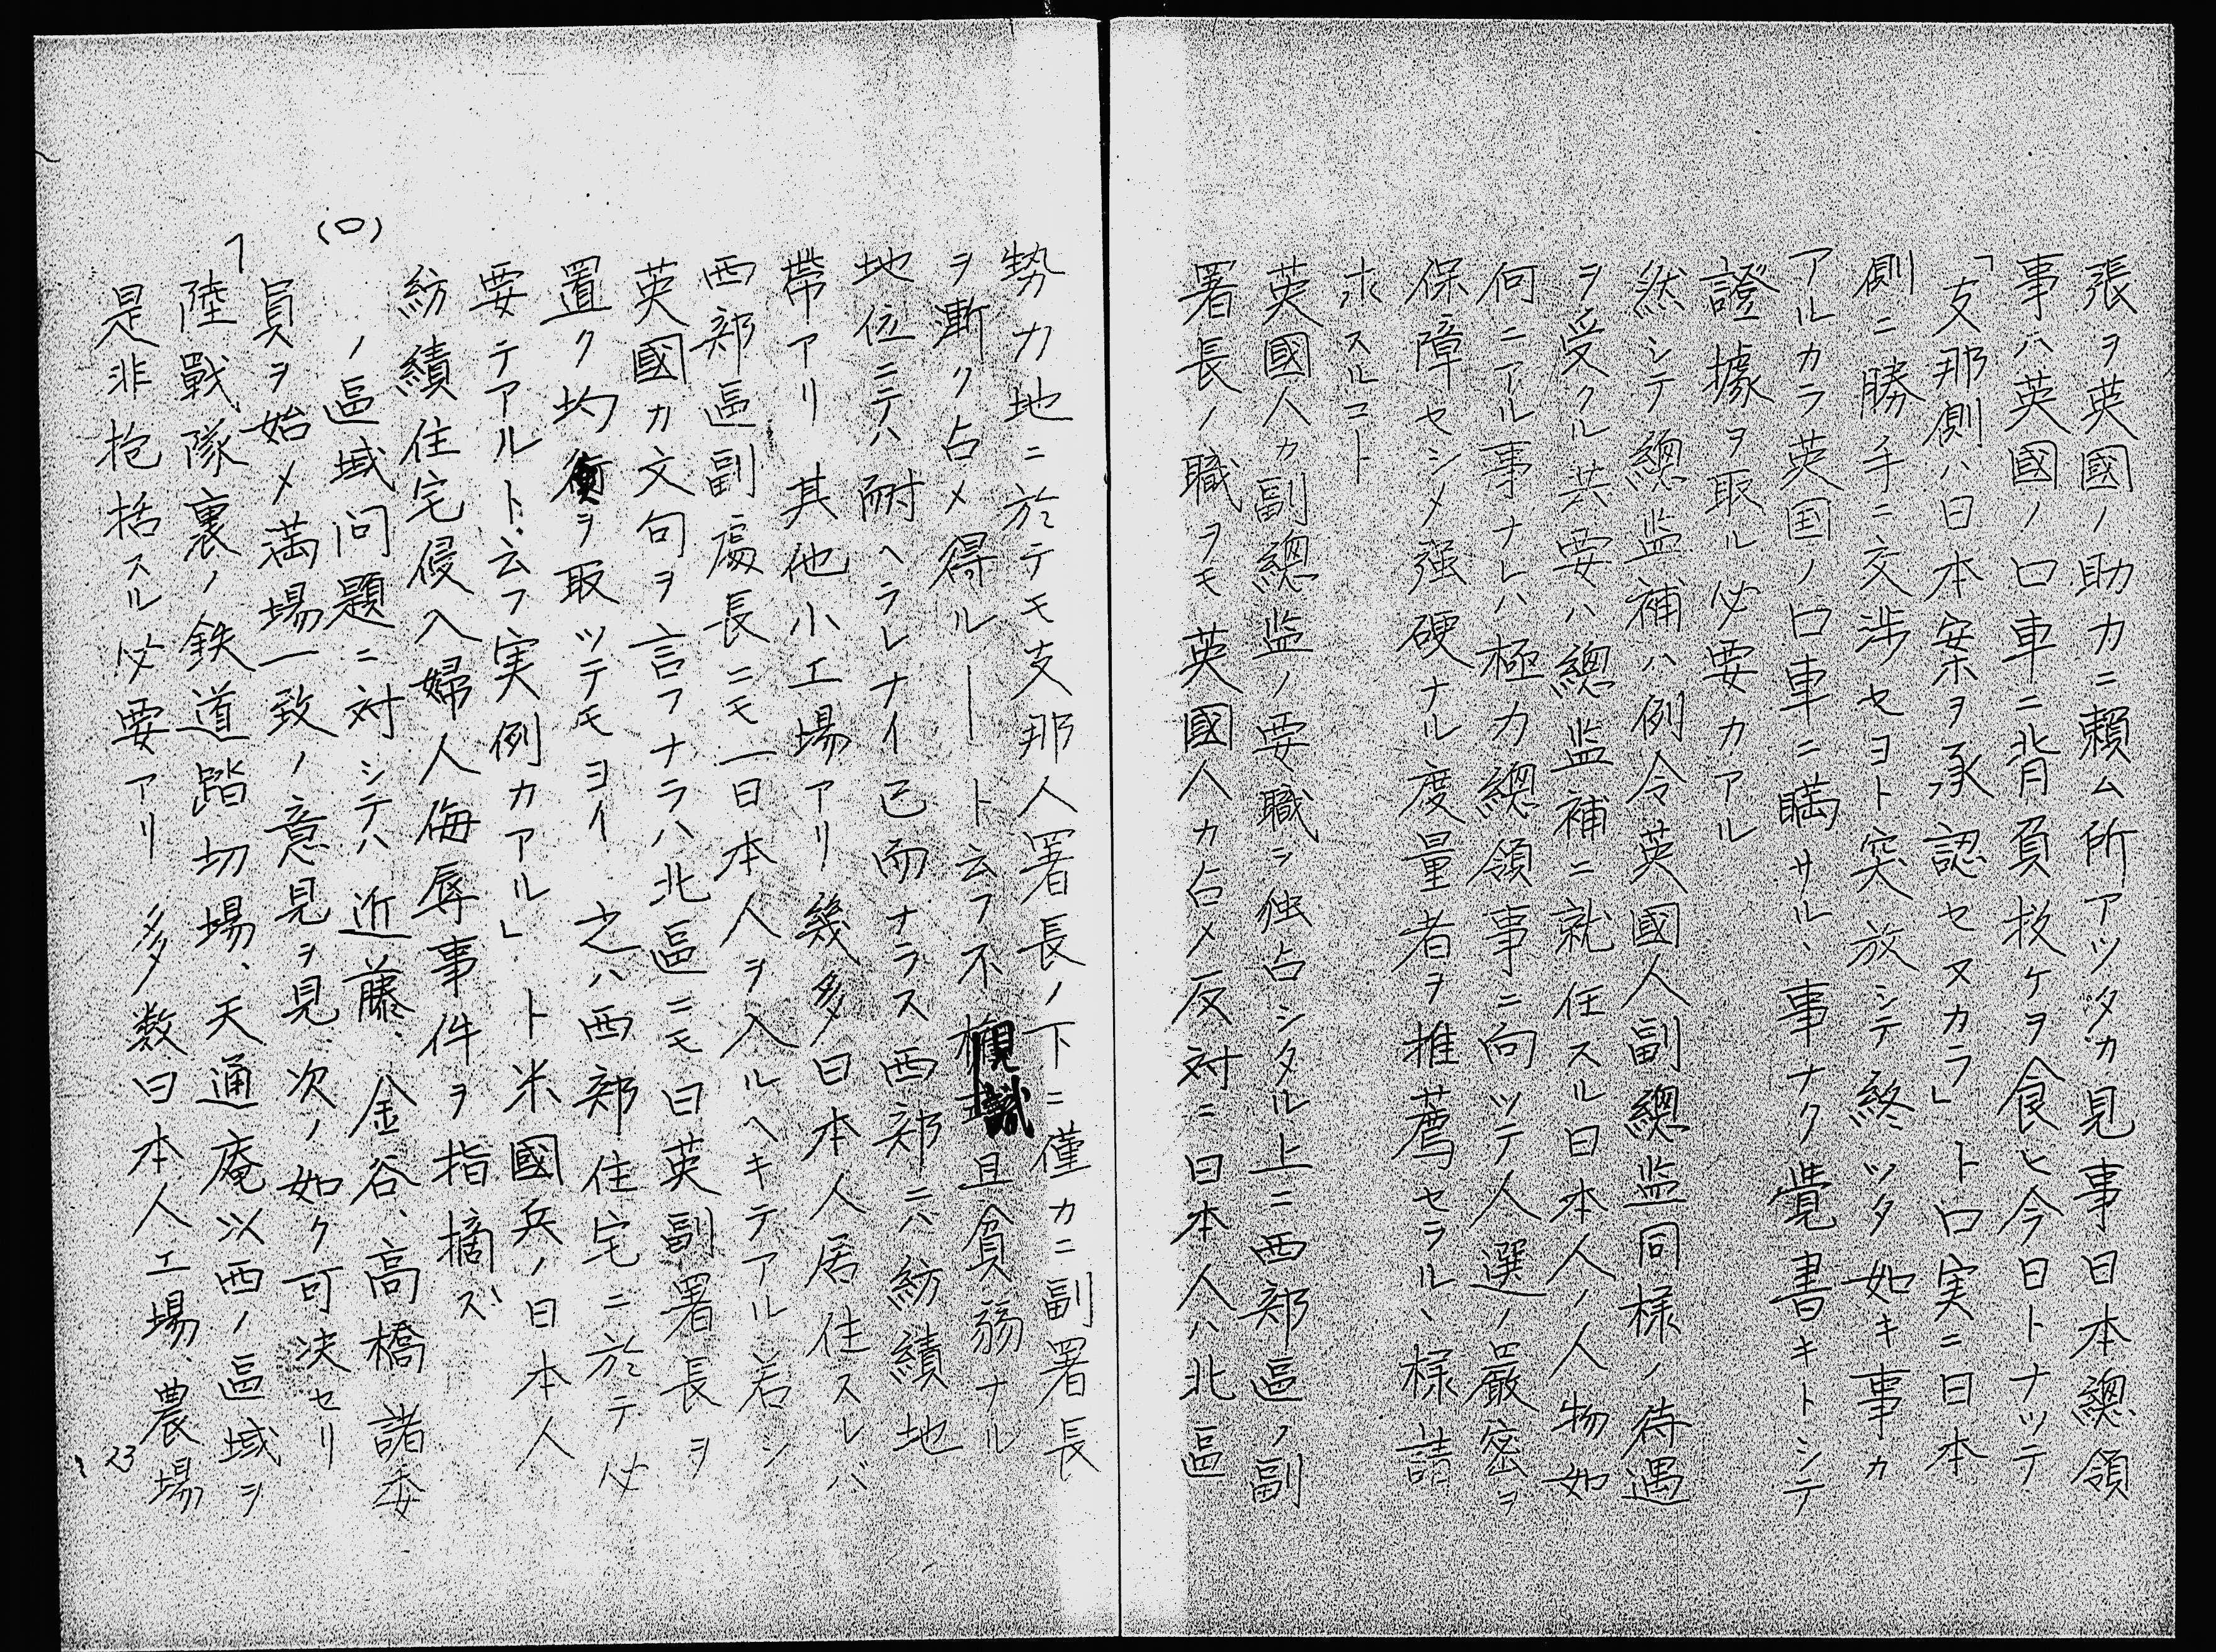 張ヲ英國ノ助力ニ賴ム所アツタカ見事日本總領
事ハ英國ノ口車ニ背負投ケヲ食ヒ今日トナツテ
「支那側ハ日本案ヲ承認セヌカラ」ト口実ニ日本
側ニ勝手ニ交渉セヨト突放シテ終ツタ如キ事カ
アルカラ英国ノ口車ニ瞞サルヽ事ナク覺書キトシテ
證據ヲ取ル必要カアル
然シテ總监補ハ例令英國人副總监同様ノ待遇
ヲ受クル共要ハ總监補ニ就任スル日本人ノ人物如
何ニアル事ナレハ極力總領事ニ向ツテ人選ノ嚴密ヲ
保障セシメ强硬ナル度量者ヲ推薦セラルヽ様請
求スルコト
英國人カ副總监ノ要職ヲ独占シタル上ニ西部區ノ副
署長ノ職ヲモ英國人カ占メ反対ニ日本人ハ北區
勢力地ニ於テモ支那人署長ノ下ニ僅カニ副署長
ヲ漸ク占メ得ル――ト云フ不 且貧弱ナル
地位ニテハ耐ヘラレナイ已而ナラス西部ニハ紡績地
帶アリ其他小工場アリ幾多日本人居住スレバ
西部區副處長ニモ一日本人ヲ入ルヘキテアル若シ
英國カ文句ヲ言フナラハ北區ニモ日英副署長ヲ
置ク均衡ヲ取ツテモヨイ 之ハ西部住宅ニ於テ必
要テアルト云フ実例カアル」ト米國兵ノ日本人
紡績住宅侵入婦人侮辱事件ヲ指摘ス
(ロ)ノ區域问題ニ対シテハ近藤、金谷、高橋諸委
員ヲ始メ満場一致ノ意見ヲ見、次ノ如ク可决セリ
陸戰隊裏ノ鉄道踏切場、天通庵以西ノ區域ヲ
是非抱括スル必要アリ 多数日本人工場、農場
23